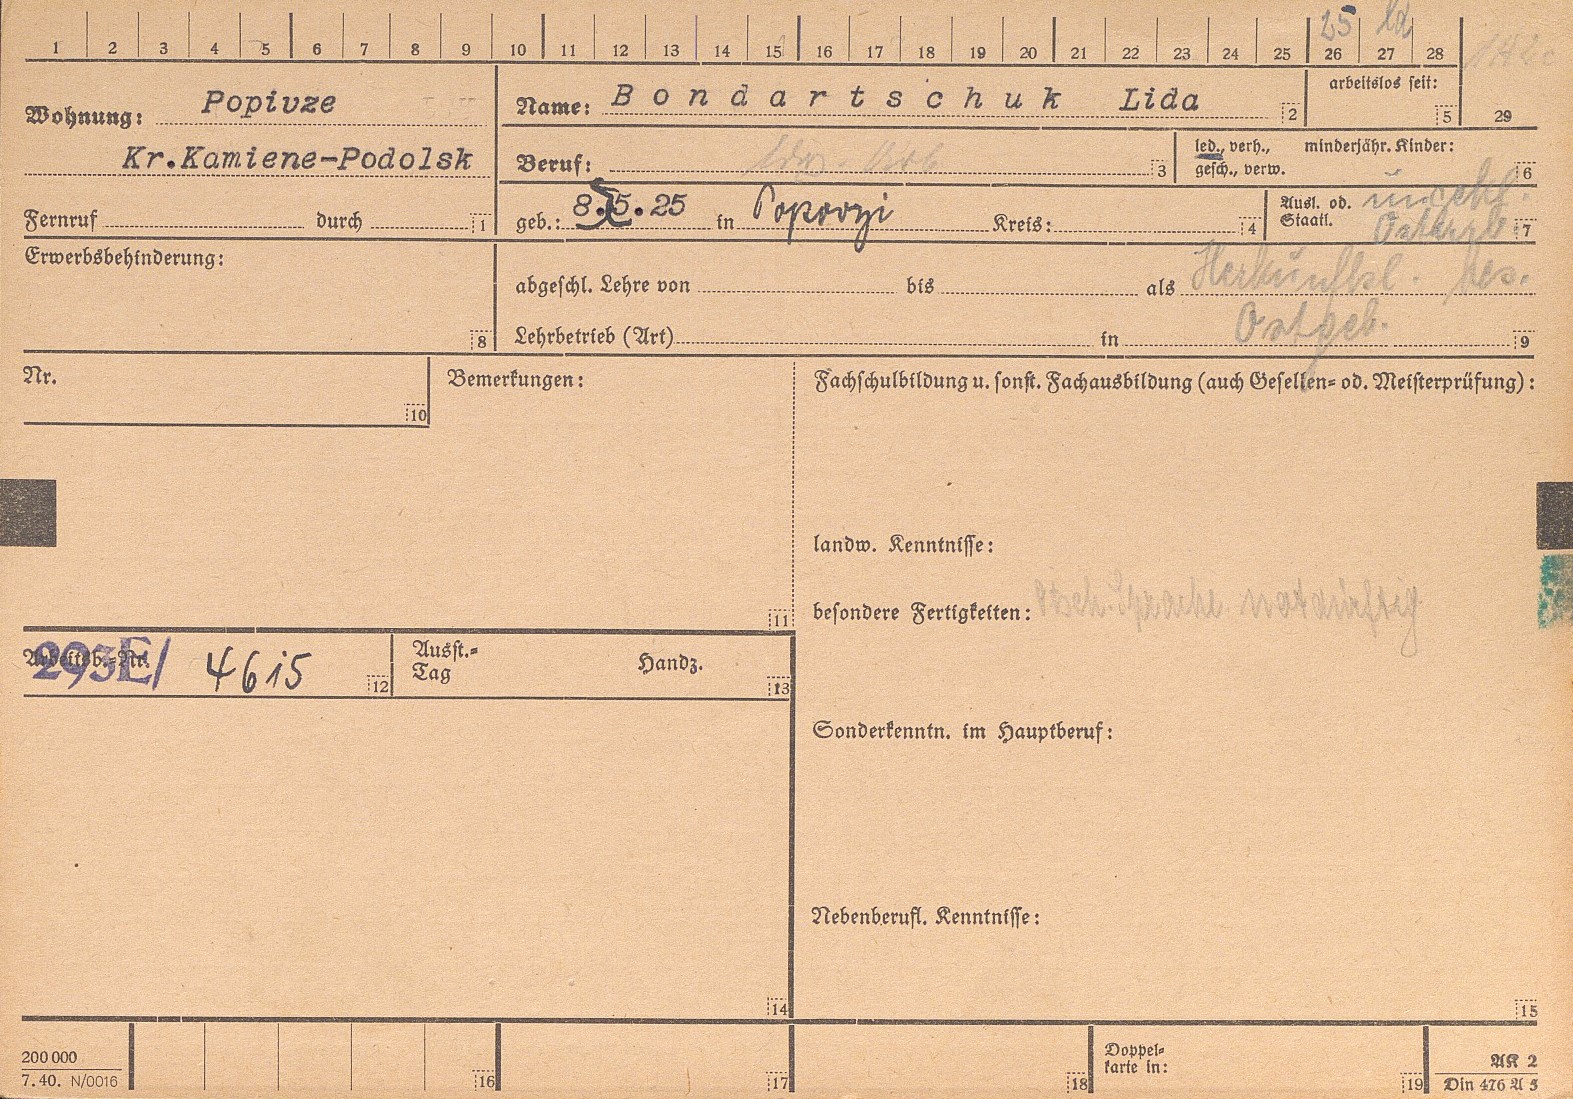 1 2 3 4 5 6 7 8 9 10 11 12 13 14 15 16 17 18 19 20 21 22 23 24 25 26 27 28
25
Wohnung: Popivze
Kr.Kamiene-Podolsk
Fernruf durch 1
Name: Bondartschuk Lida 2
arbeitslos seit: 5
29
Beruf: 3
led., verh., minderjähr. Kinder:
gesch., verw. 6
geb.: 8.5.25 in Popovzi Kreis: 4
Ausl. od.
Staatl. 7
Erwerbsbehinderung: 8
abgeschl. Lehre von bis als Herkunftsl. bes.
Ostgeb.
Lehrbetrieb (Art) in 9
Nr. 10
Bemerkungen: 11
Fachschulbildung u. sonst. Fachausbildung (auch Gesellen- od. Meisterprüfung):
landw. Kenntnisse:
besondere Fertigkeiten: Dtsch. Sprache notdürftig
Arbeitsb.-Nr. 293E/ 4615 12
Ausst.-
Tag Handz. 13
Sonderkenntn. im Hauptberuf:
Nebenberufl. Kenntnisse:
14
15
200 000
7. 40. N/0016
16
17
18
Doppel-
karte in: 19
AK 2
Din 476 A 5